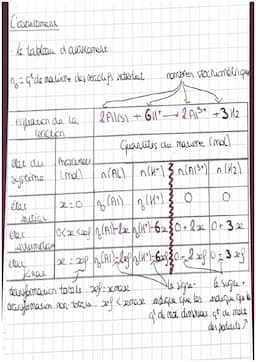 L'avancement
• le tableau d'avancement
n₀ = qté de matière des réactifs
nombres stœchiométriques
équation de la réaction
2Al(s) + 6H⁺ → 2Al³⁺ + 3H₂
Quantités de matière (mol)
état du système
Avancement (mol)
n(Al) n(H⁺) n(Al³⁺) n(H₂)
état initial
x = 0 n₀(Al) n₀(H⁺) 0 0
état
0<x<xf n₀(Al)-2x n₀(H⁺)-6x 0+2x 0+3x
état final
x = xf n₀(Al)-2xf n₀(H⁺)-6xf 0+2xf 0+3xf
transformation totale : xf = xmax
transformation non-totale : xf < xmax
le signe -
indique que les
qté de mol diminue
le signe +
indique que la
qté de mole
des produits